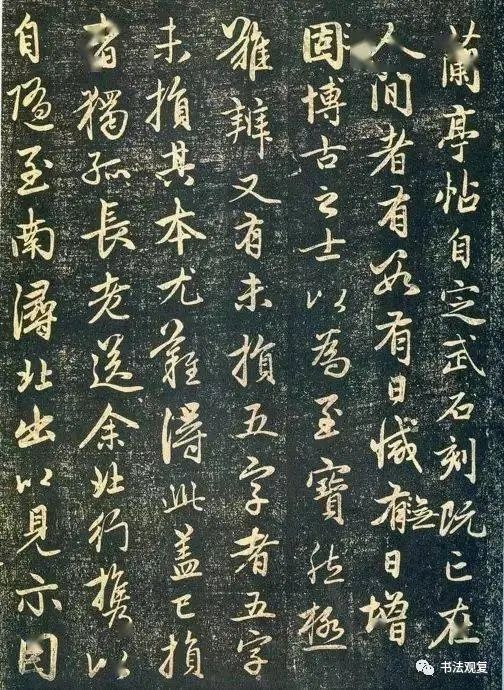 蘭亭帖自定武石刻既亡在
人間者有數有日減有無日增
固博古之士以為至寶然極
難辨又有未損五字者五字
未損其本尤難得此蓋已損
者獨孤長老送余北行攜以
自隨至南潯北出以見示因
书法观复